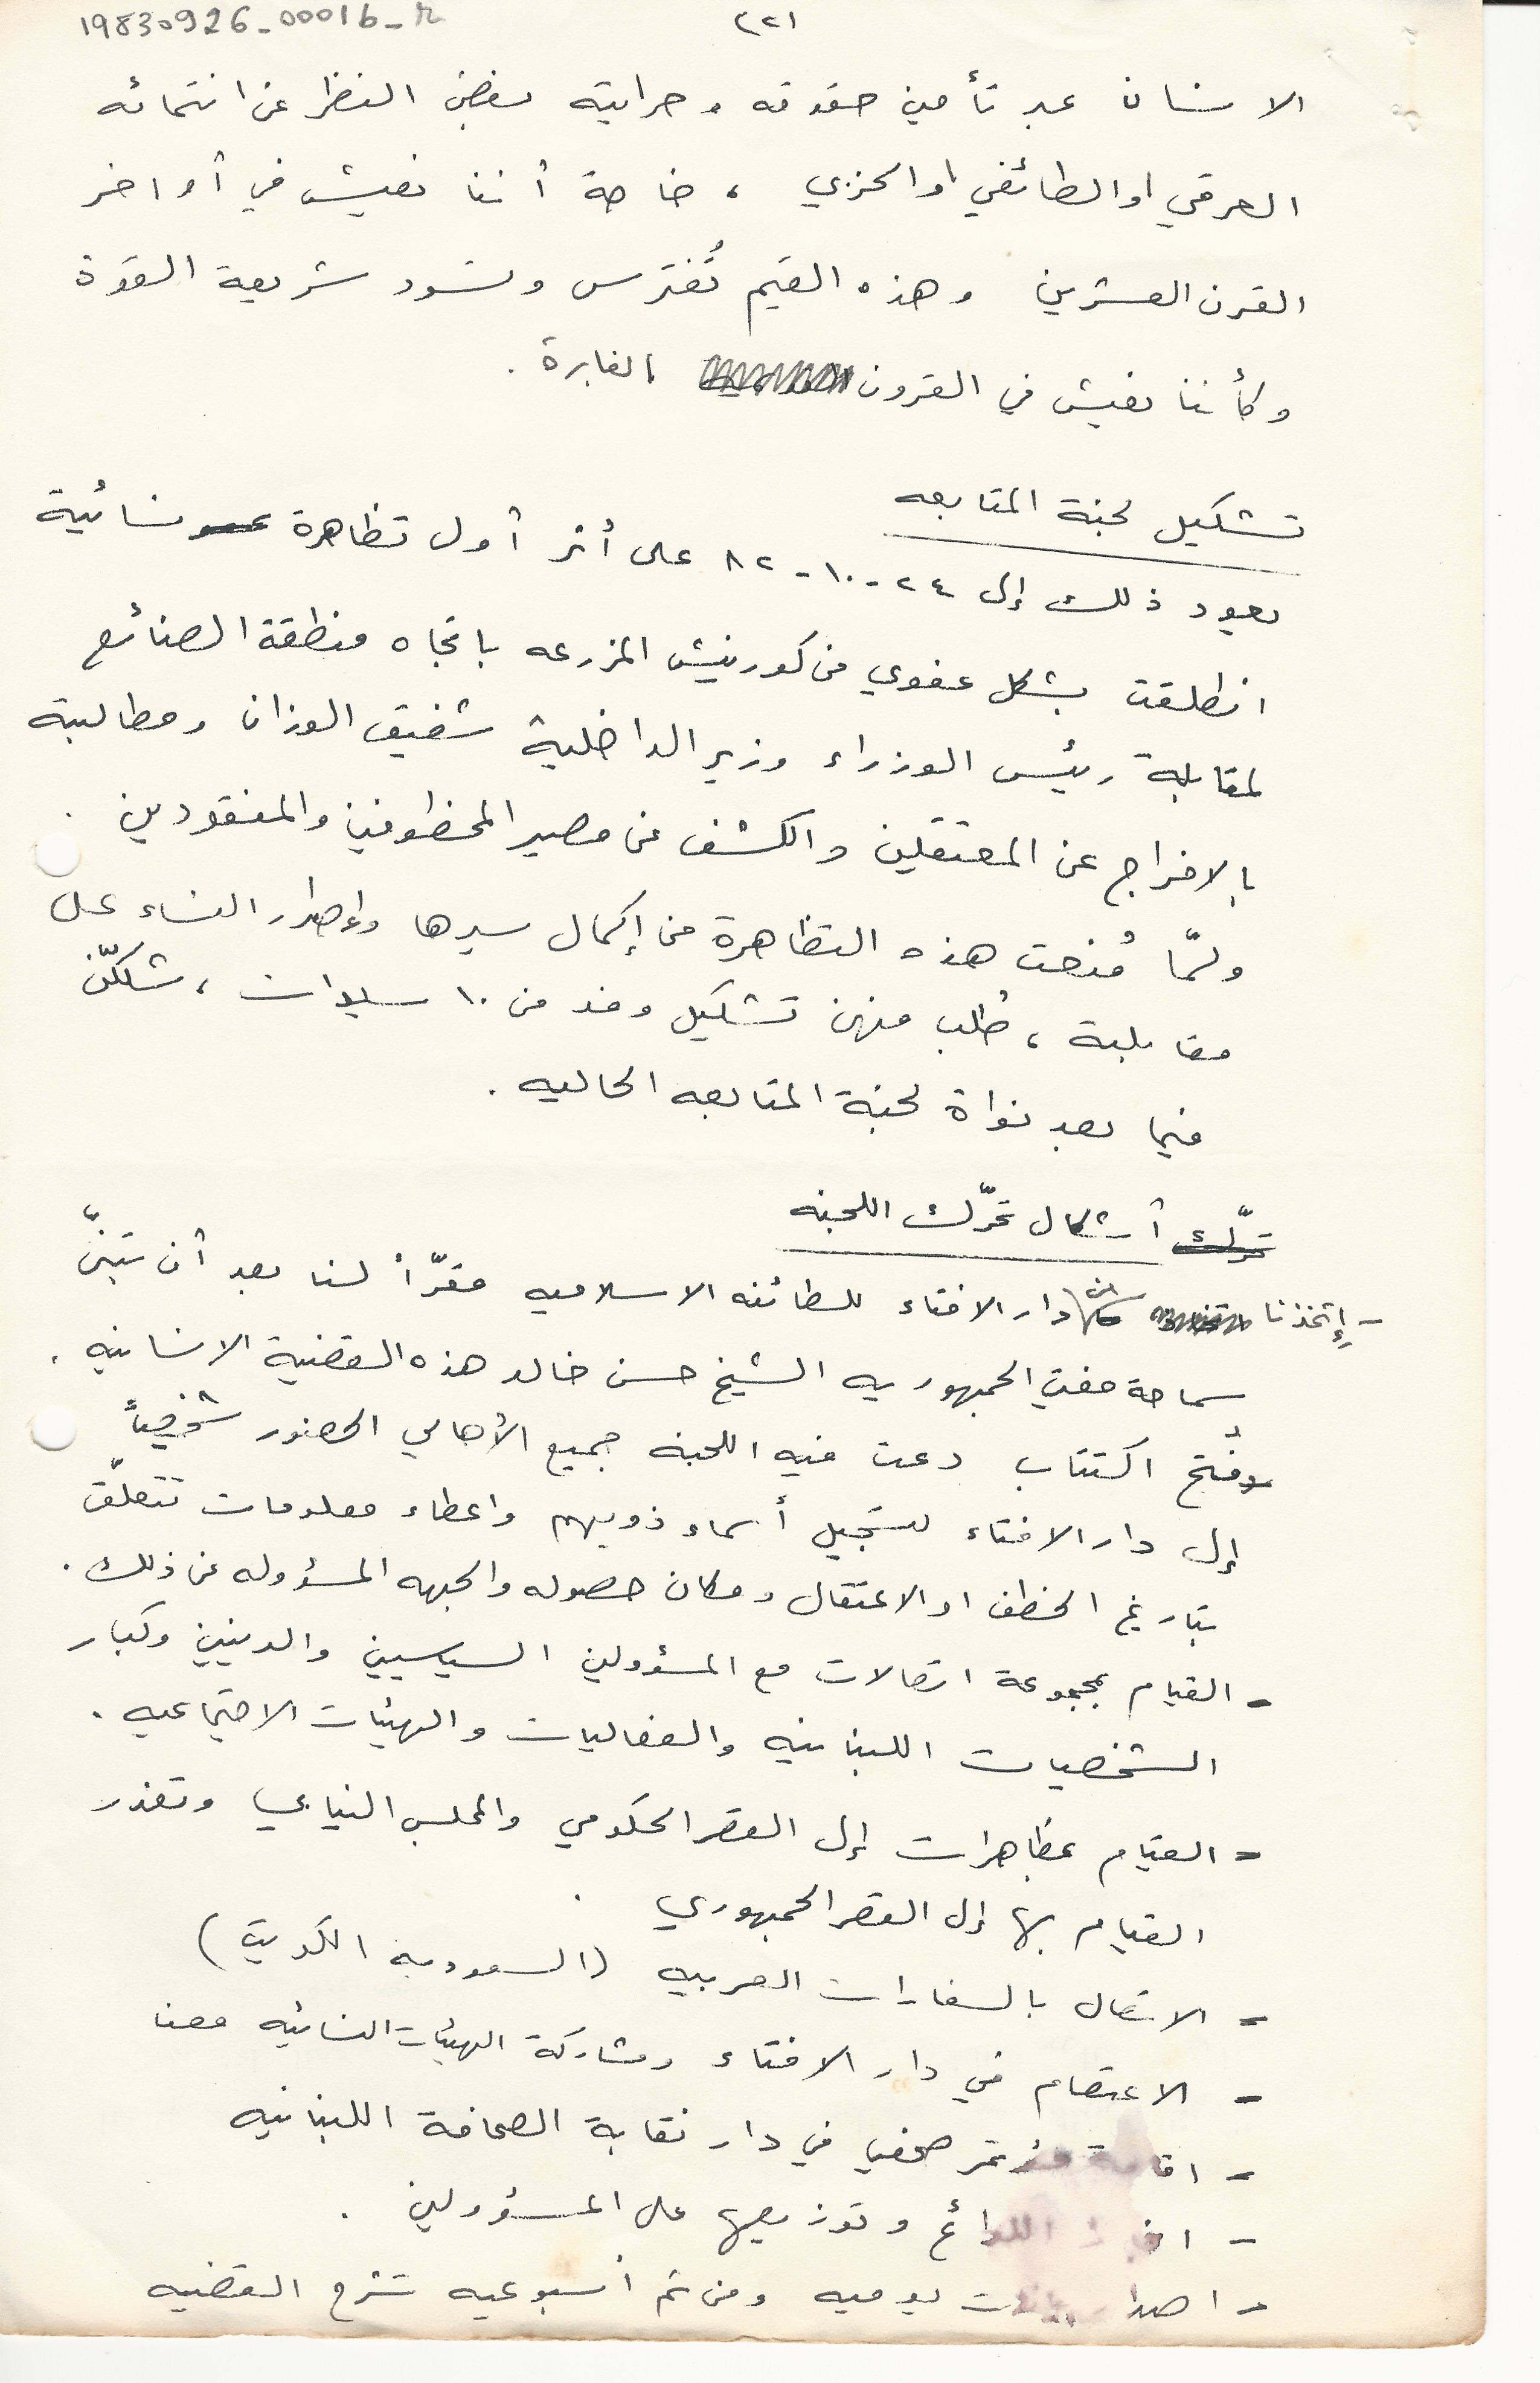 19830926_00016_r
(٢)
الانسان عبر تأمين حقوقه وحرايته بغض النظر عن انتمائه
العرقي او الطائفي او الحزبي ، خاصة أننا نعيش في أواخر
القرن العشرين وهذه القيم تُفترس وتسود شريعة القوة
وكأننا نعيش في القرون الغابرة .
تشكيل لجنة المتابعه
يعود ذلك إلى ٢٤-١٠-٨٢ على أثر أول تظاهرة نسائية
انطلقت بشكل عفوي من كورنيش المزرعه باتجاه منطقة الصنائع
لمقابلة رئيس الوزراء وزير الداخلية شفيق الوزان ومطالبته
بالافراج عن المعتقلين والكشف عن مصير المخطوفين والمفقودين .
ولمّا مُنعت هذه التظاهرة من إكمال سيرها وإصرار النساء على
مقابلته ، طُلب منهن تشكيل وفد من ١٠ سيدات ، شكلّن
فيما بعد نواة لجنة المتابعه الحاليه .
تحرّك أشكال تحرّك اللجنه
- إتخذنا من دار الافتاء للطائفه الاسلاميه مقرّاً لنا بعد أن تبنّى
سماحة مفتي الجمهوريه الشيخ حسن خالد هذه القضية الانسانيه .
وفُتح اكتتاب دعت فيه اللجنه جميع الأهالي الحضور شخصياً
إلى دار الافتاء لتسجيل أسماء ذويهم واعطاء معلومات تتعلّق
بتاريخ الخطف او الاعتقال ومكان حصوله والجهه المسؤوله عن ذلك .
- القيام بمجموعة اتصالات مع المسؤولين السياسيين والدينيين وكبار
الشخصيات اللبنانيه والفعاليات والهيئات الاجتماعيه .
- القيام بمظاهرات إلى القصر الحكومي والمجلس النيابي وتعذر
القيام بها إلى القصر الجمهوري .
- الاتصال بالسفارات العربيه (السعوديه الكويت)
- الاعتصام في دار الافتاء ومشاركة الهيئات النسائيه معنا
- اقامة مؤتمر صحفي في دار نقابة الصحافة اللبنانيه
- اللوائح وتوزيعها على المسؤولين .
- يوميه ومن ثم أسبوعيه تشرح القضيه